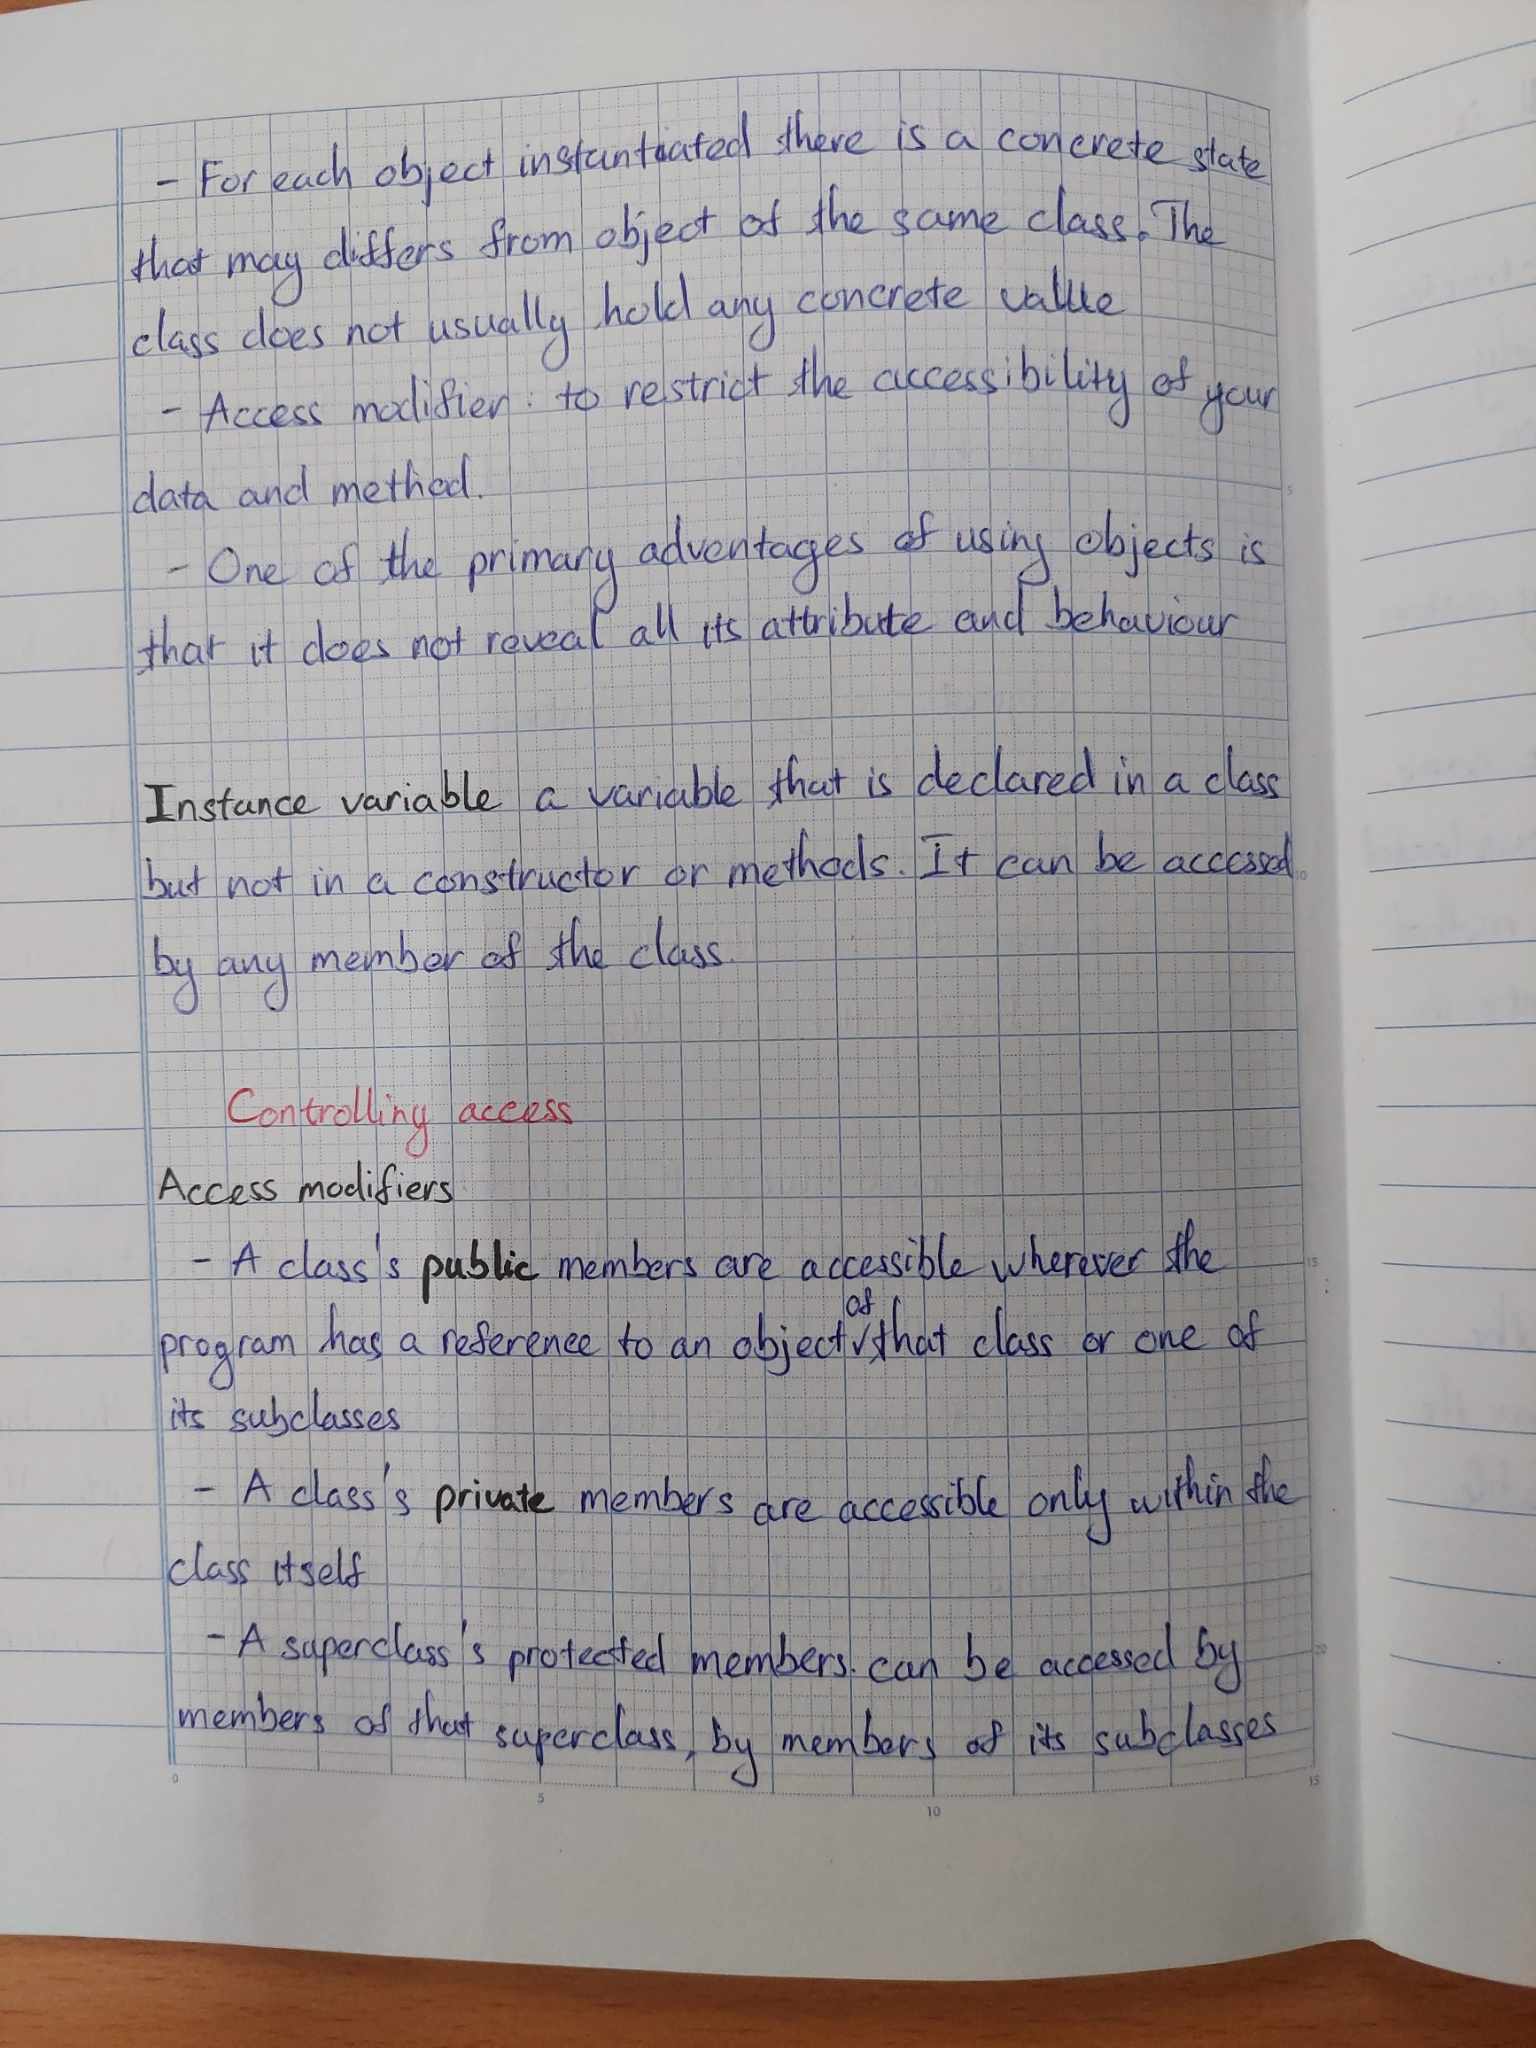 - For each object instantiated there is a concrete state
that may differs from object of the same class. The
class does not usually hold any concrete value
- Access modifier: to restrict the accessibility of your
data and method.
- One of the primary adventages of using objects is
that it does not reveal all its attribute and behaviour
Instance variable a variable that is declared in a class
but not in a constructor or methods. It can be accessed
by any member of the class.
Controlling access
Access modifiers
- A class's public members are accessible wherever the
program has a reference to an object of that class or one of
its subclasses
- A class's private members are accessible only within the
class itself
- A superclass's protected members can be accessed by
members of that superclass, by members of its subclasses
5
10
15
20
0 5 10 15